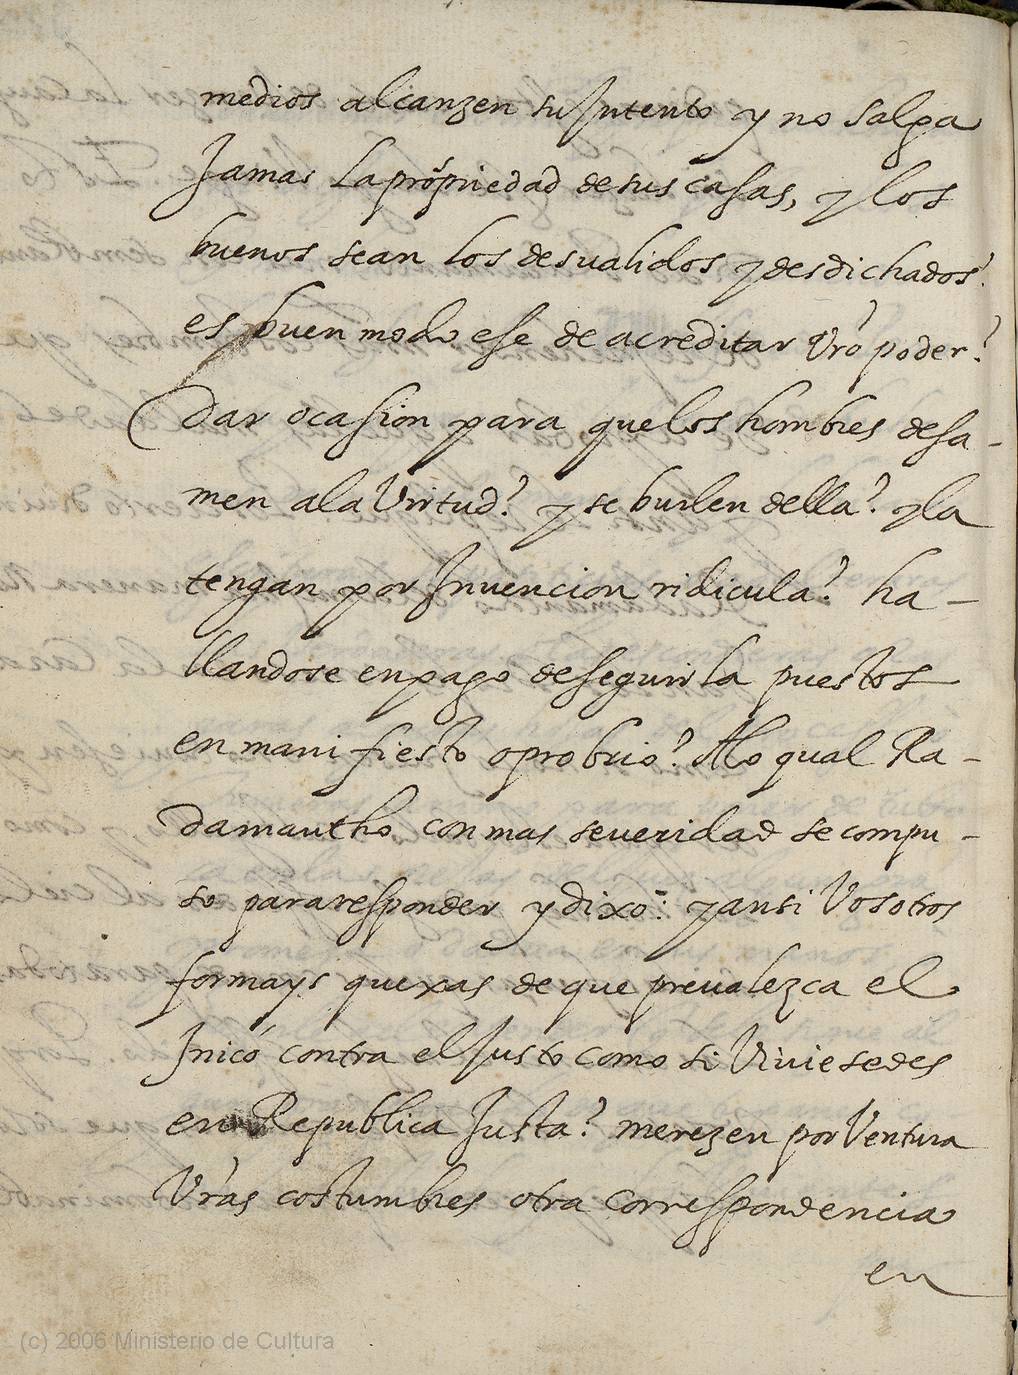 medios alcanzen su Jntento y no salga
Jamas la propriedad de sus casas, y los
buenos sean los desualidos y desdichados?
es buen modo ese de acreditar Vr̃o poder?
Dar ocasion para que los hombres desa-
men a la Virtud? y se burlen della? y la
tengan por Jnvencion ridicula? ha-
llandose en pago de seguirla puestos
en manifiesto oprobrio? A lo qual Ra-
damantho con mas seueridad se compu-
so para responder y dixo: y ansi Vosotros
formays quexas de que preualezca el
Jnicó contra el Justo como si Viuiesedes
en Republica Justa? merezen por Ventura
Vr̃as costumbres otra correspondencia
en
(c) 2006 Ministerio de Cultura